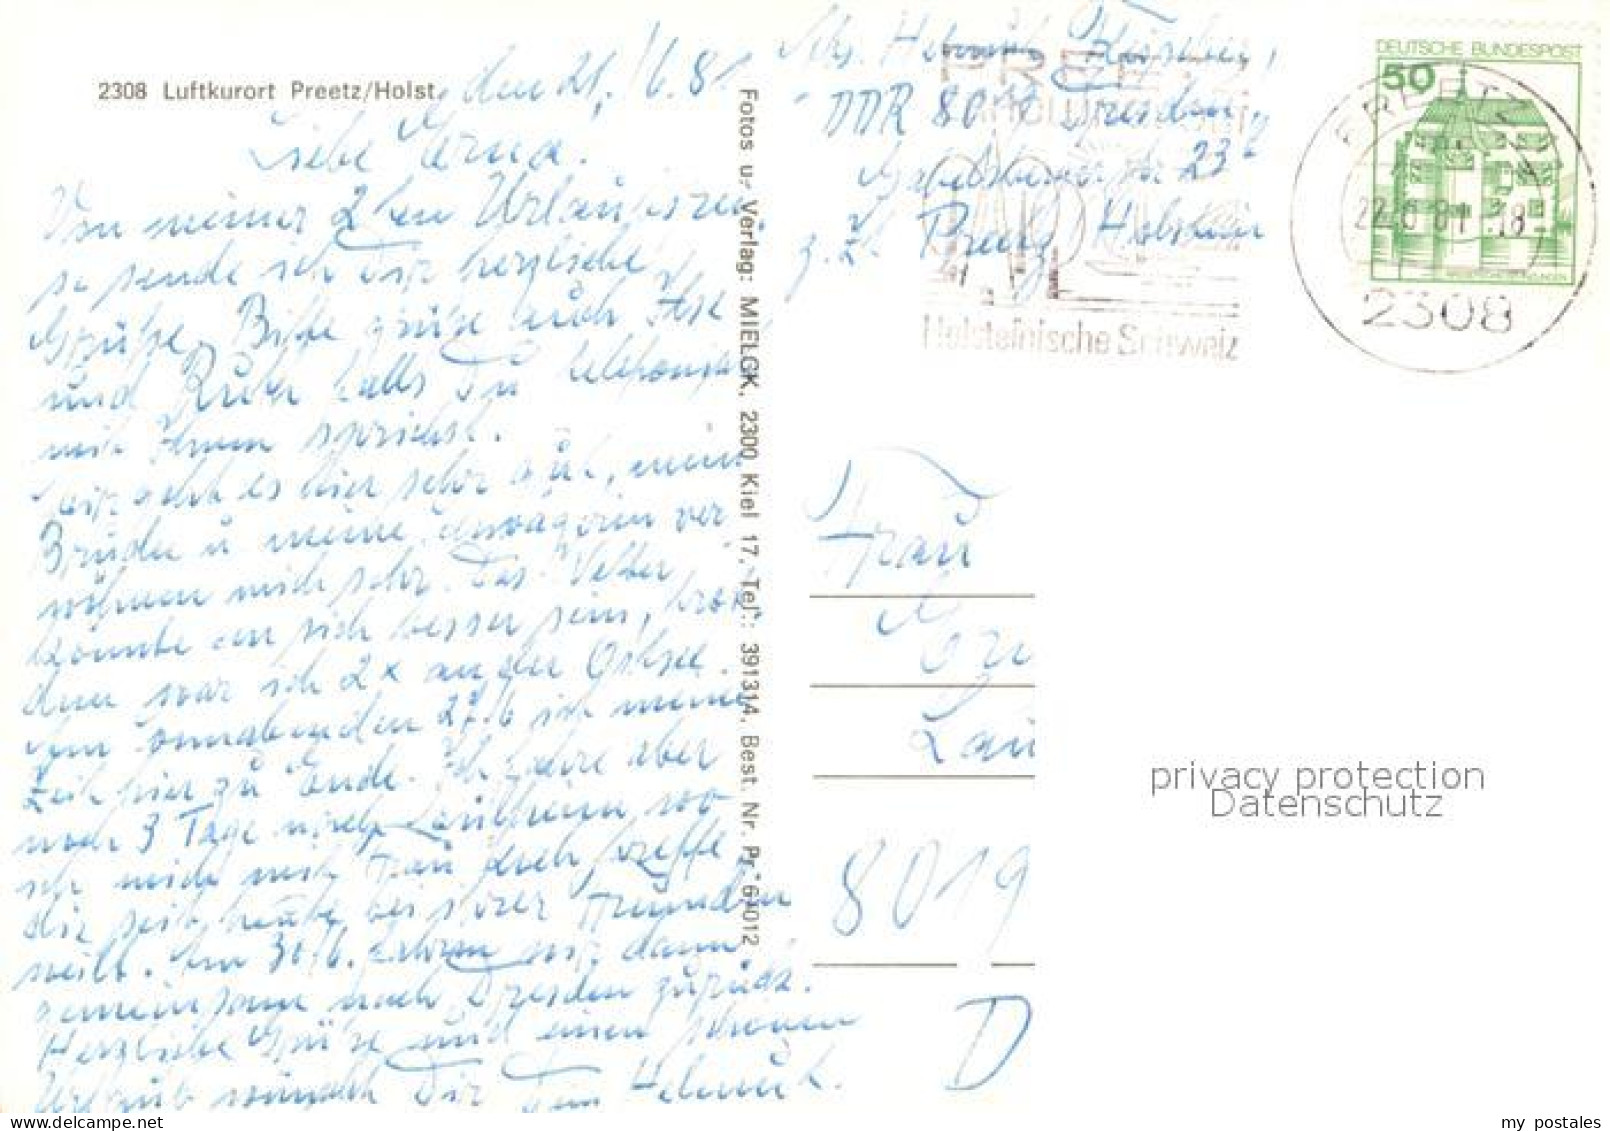 2308 Luftkurort Preetz/Holst.
den 21./6.81
Liebe Erna.
Von meiner 2ten Urlaubsrei
se sende ich Dir herzliche
Grüße. Bitte grüße auch Ilse
und falls Du telefonisch
mit Ihnen sprichst.
Mir geht es hier sehr gut, mein
Bruder u meine Schwägerin ver
wöhnen mich sehr. Das Wetter
könnte an sich besser sein, trotz
dem war ich 2x an der Ostsee.
Am Sonnabend den 27/6 ist meine
Zeit hier zu Ende. Ich fahre aber
noch 3 Tage nach wo
ich mich mit Frau treffe
die seit heute bei ihrer Freundin
weilt. Am 30/6. fahren wir dann
gemeinsam nach Dresden zurück.
Herzliche Grüße und einen schönen
Urlaub wünscht Dir Dein Helmut.
Fotos u. Verlag: MIELCK, 2300 Kiel 17, Tel.: 391314, Best. Nr. Pr. 6/1012
Abs. Helmut
DDR 8019 Dresden
23
z.Z. Preetz Holstein
Holsteinische Schweiz
DEUTSCHE BUNDESPOST
50
PREETZ
22.6.81-18
2308
Frau
8019
D
privacy protection
Datenschutz
my postales